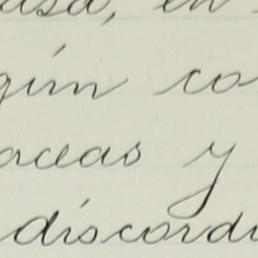 asa, en
gún co
aceas y
discordi